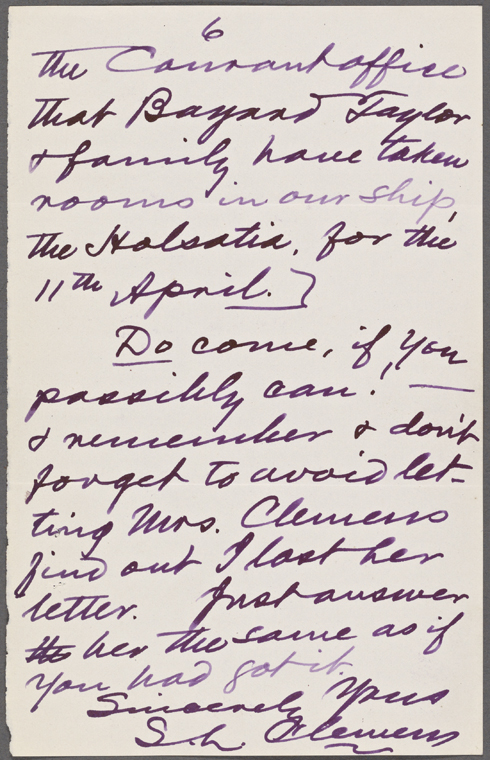 6
the Courant office
that Bayard Taylor
& family have taken
rooms in our ship,
the Holsatia, for the
11th April.]
Do come, if you
possibly can! —
& remember & don't
forget to avoid let-
ting Mrs. Clemens
find out I lost her
letter. Just answer
her the same as if
you had got it.
Sincerely Yours
S. L. Clemens